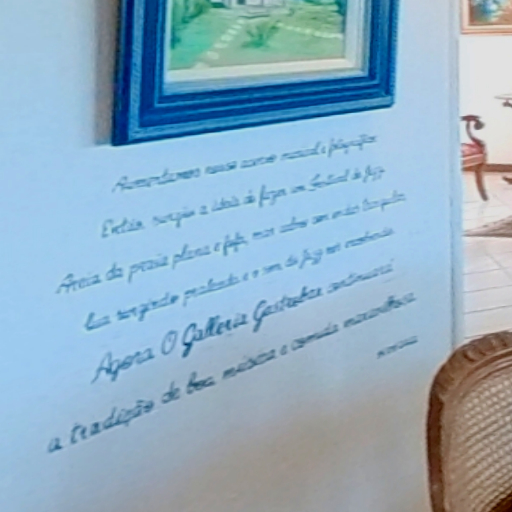 Aumentamos nosso acervo musical e fotográfico
Então, surgiu a ideia de fazer um festival de jazz
Areia da praia plana e fofa, mar calmo sem ondas
lua surgindo prateada e o som do jazz nos
Agora O Galleria Gastrobar continuará
a tradição de boa música e comida maravilhosa